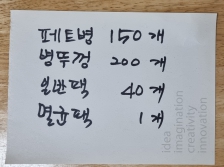 페트병 150개
병뚜껑 200개
일반팩 40개
멸균팩 1개
idea
imagination
creativity
innovation